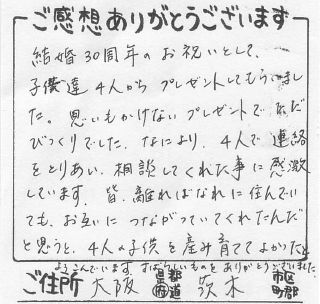 ご感想ありがとうございます
結婚30周年のお祝いとして、
子供達4人から プレゼントしてもらいまし
た。思いもかけない プレゼントで ただ
びっくりでした。なにより、4人で 連絡
をとりあい、相談してくれた事に 感激
しています。皆、離ればなれに 住んでい
ても、お互いに つながっていてくれたんだ
と思うと、4人の子供を 産み育ててよかったと
よろこんでいます。すばらしいものを ありがとうございました。
ご住所 大阪 都道府県 茨木 市区町郡